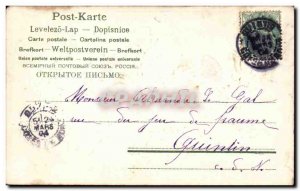 Post-Karte
Levelező-Lap — Dopisnice
Carte postale — Cartolina postale
Brefkort — Weltpostverein — Brefkort
Union postale universelle — Unione postale universale
ВСЕМІРНЫЙ ПОЧТОВЫЙ СОЮЗЪ. РОССІЯ.
ОТКРЫТОЕ ПИСЬМО.
Monsieur Le Gal
rue du jeu de paume
Quintin
C. d. N.
MARS
04